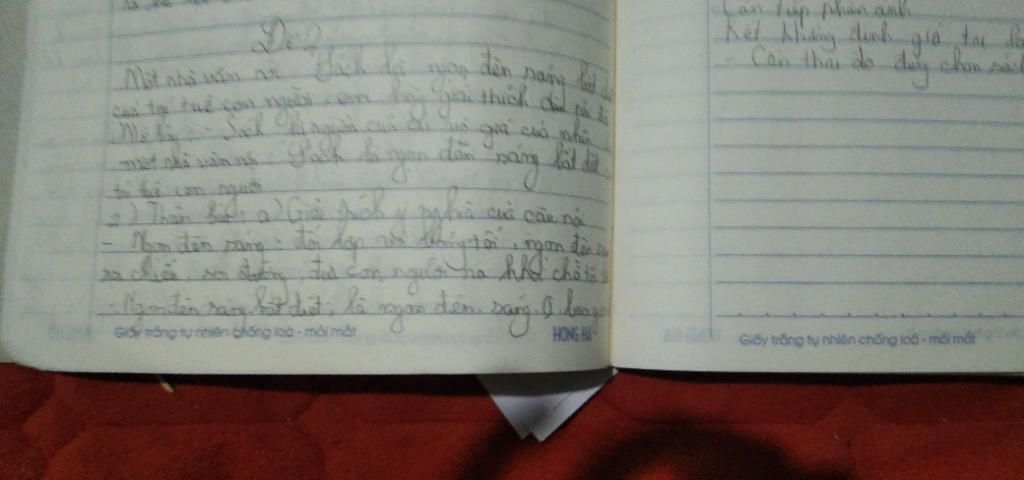 Đề 2
Một nhà văn nói "Sách là ngọn đèn sáng bất
của trí tuệ con người, em hãy giải thích
Mở bài: - Sách là nguồn của cải vô giá của nhân
một nhà văn nói: "Sách là ngọn đèn sáng bất diệt
trí tuệ con người
2) Thân bài: a) Giải thích ý nghĩa của câu nói
- Ngọn đèn sáng: đối lập với bóng tối, ngọn đèn
ra chiếu, soi đường, đưa con người ra khỏi chỗ tối
- Ngọn đèn sáng bất diệt: là ngọn đèn sáng
Giấy trắng tự nhiên chống loá - mỏi mắt
HONG HA
Cần tiếp
Kết khẳng định giá trị
- Cần thái độ đúng chọn sách
Giấy trắng tự nhiên chống loá - mỏi mắt